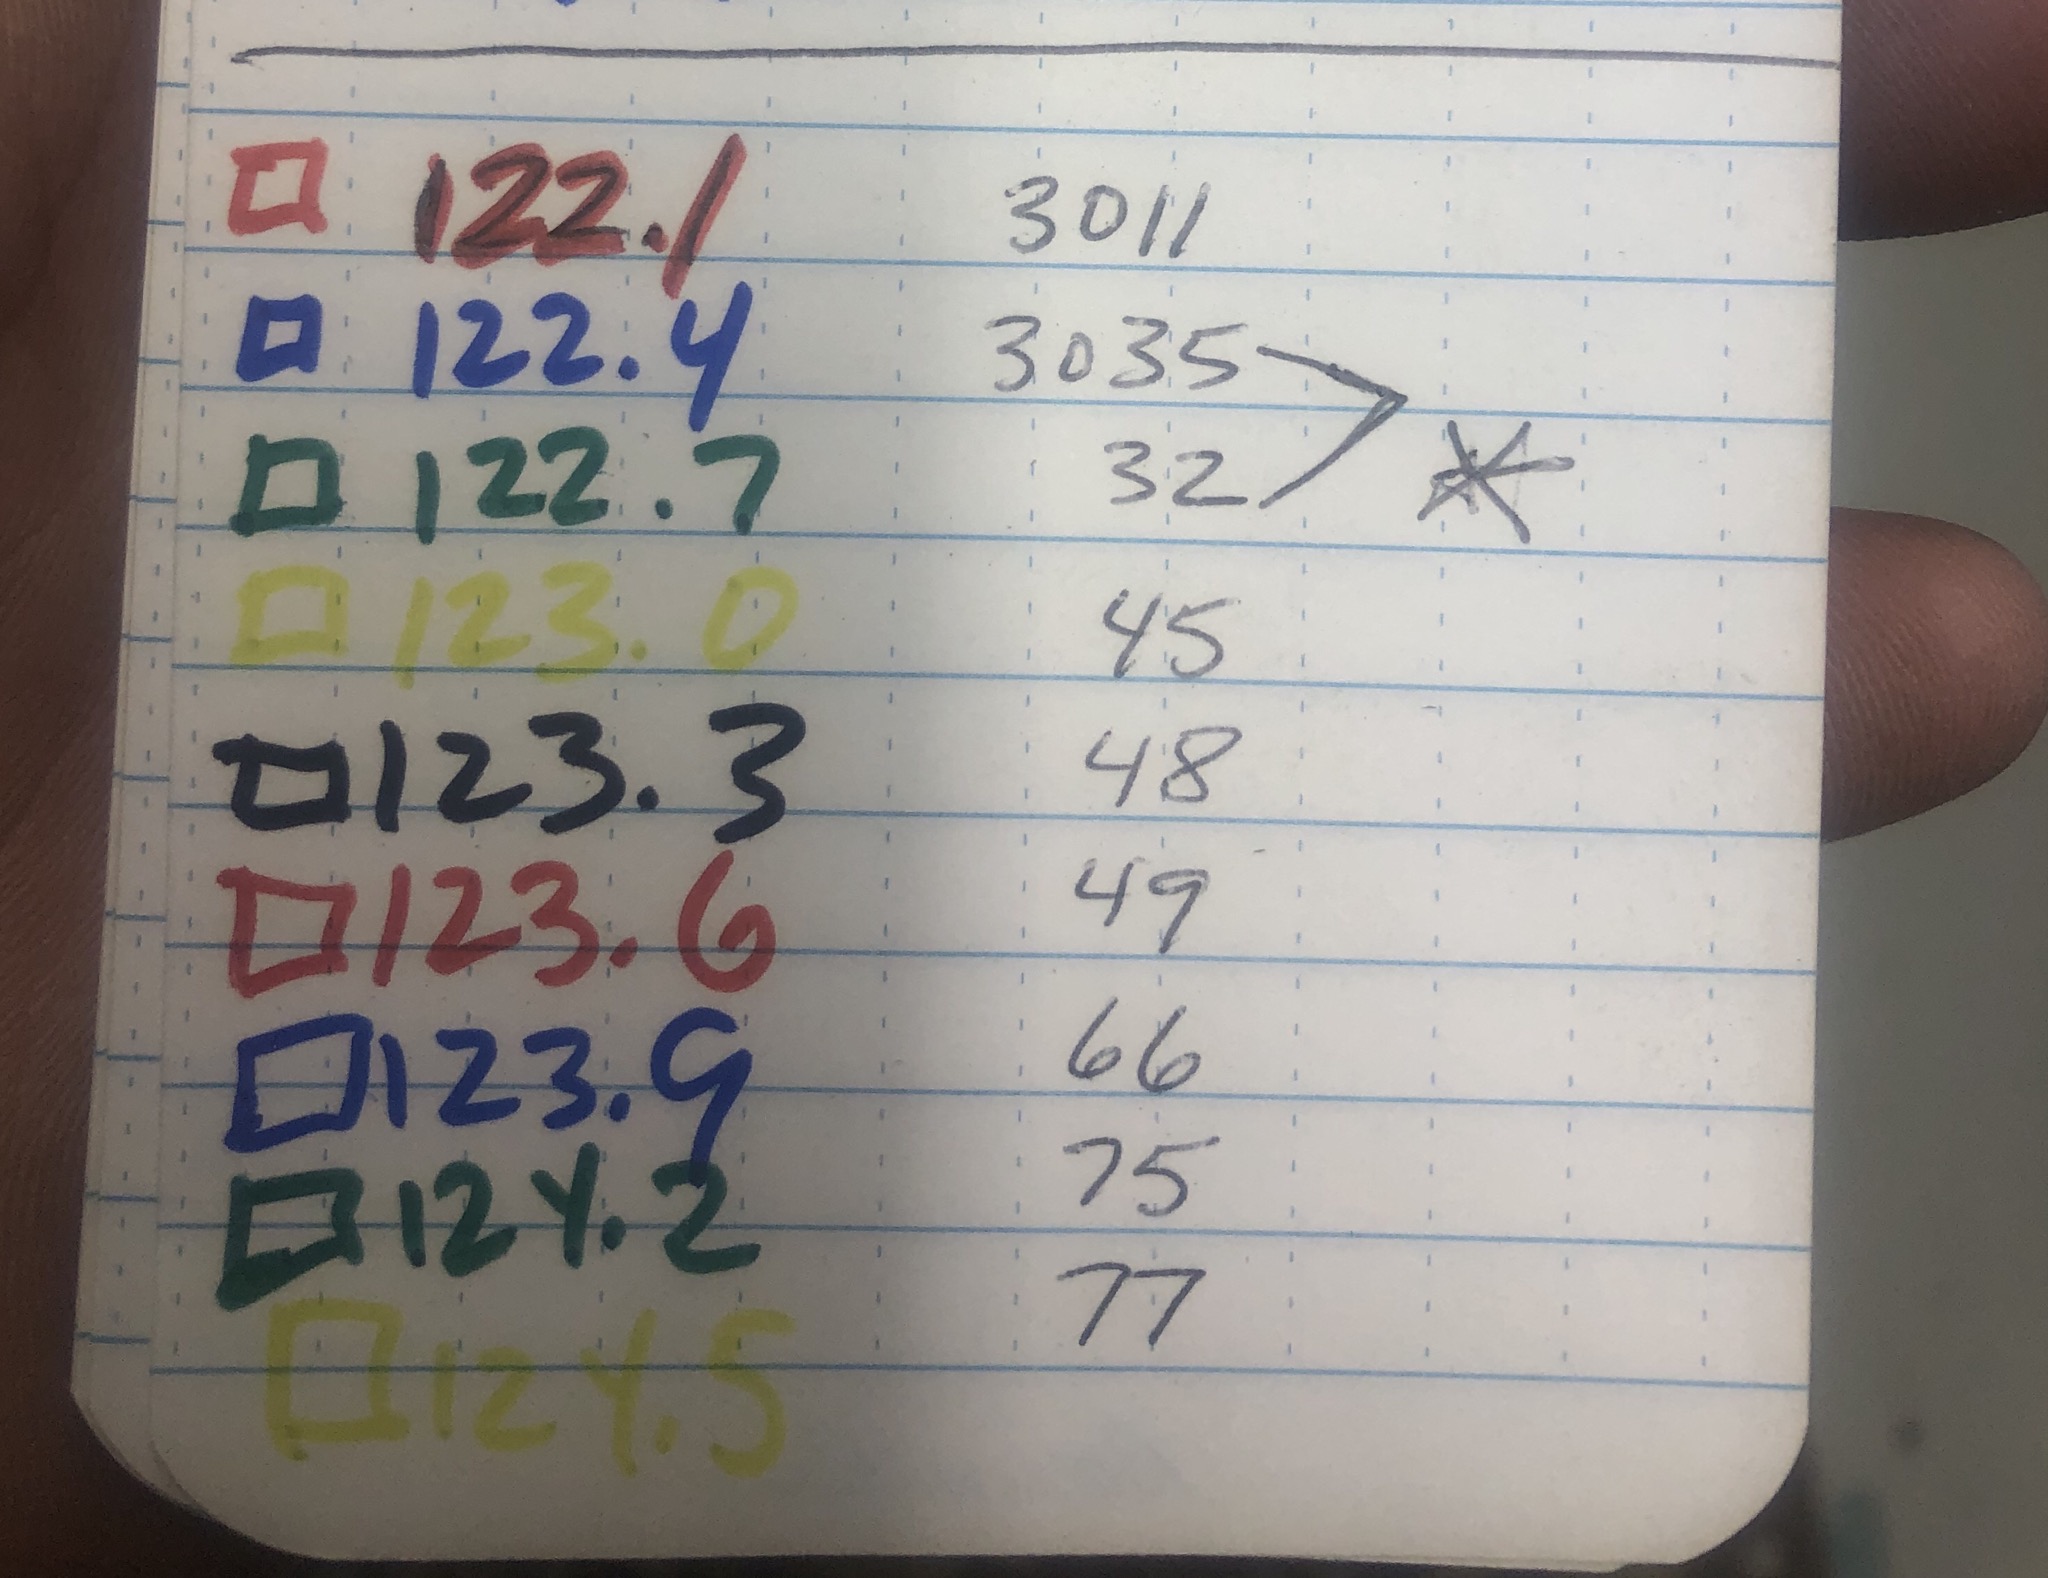 122.1 3011
122.4 3035
122.7 32
123.0 45
123.3 48
123.6 49
123.9 66
124.2 75
124.5 77